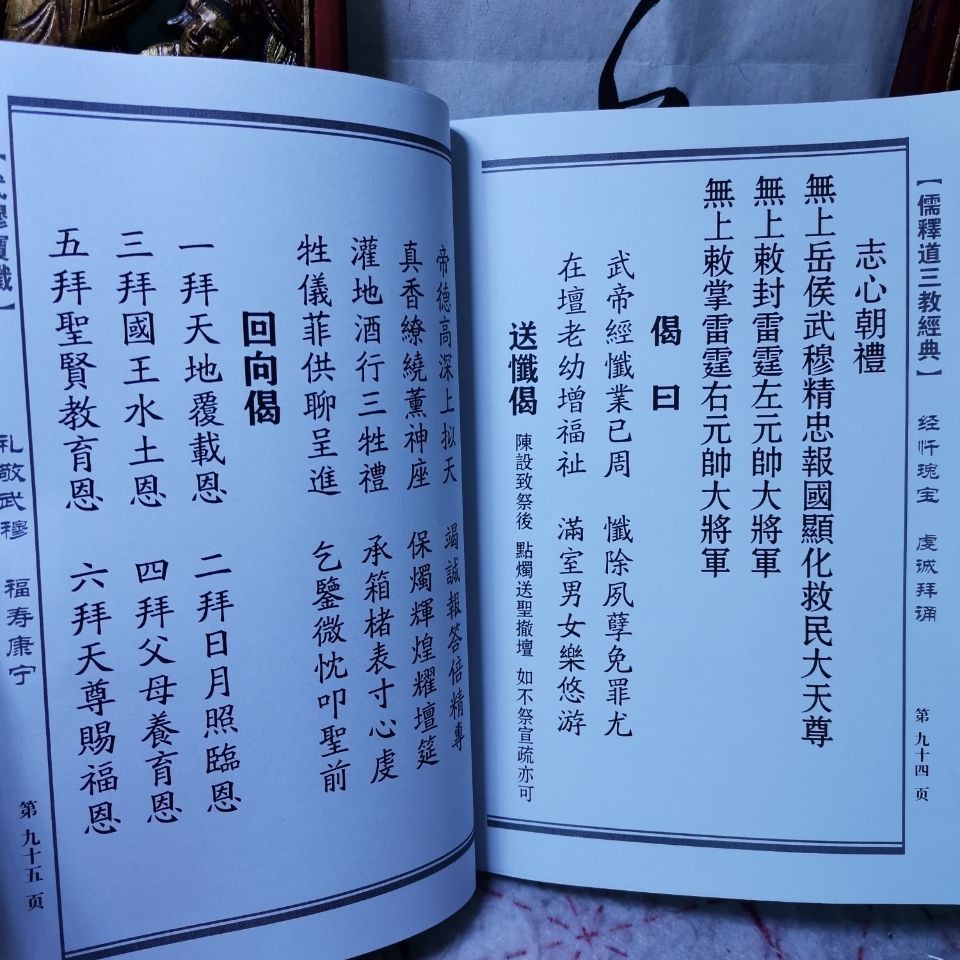 【儒釋道三教經典】 经忏瑰宝 虔诚拜诵 第九十四页
志心朝禮
無上岳侯武穆精忠報國顯化救民大天尊
無上敕封雷霆左元帥大將軍
無上敕掌雷霆右元帥大將軍
偈曰
武帝經懺業已周 懺除夙孽免罪尤
在壇老幼增福祉 滿室男女樂悠游
送懺偈 陳設致祭後 點燭送聖撤壇 如不祭宣疏亦可
帝德高深上拟天 竭誠報答倍精專
真香繚繞薰神座 保燭輝煌耀壇筵
灌地酒行三牲禮 承箱楮表寸心虔
牲儀菲供聊呈進 乞鑒微忱叩聖前
回向偈
一拜天地覆載恩 二拜日月照臨恩
三拜國王水土恩 四拜父母養育恩
五拜聖賢教育恩 六拜天尊賜福恩
武穆寶懺】 礼敬武穆 福寿康宁 第九十五页